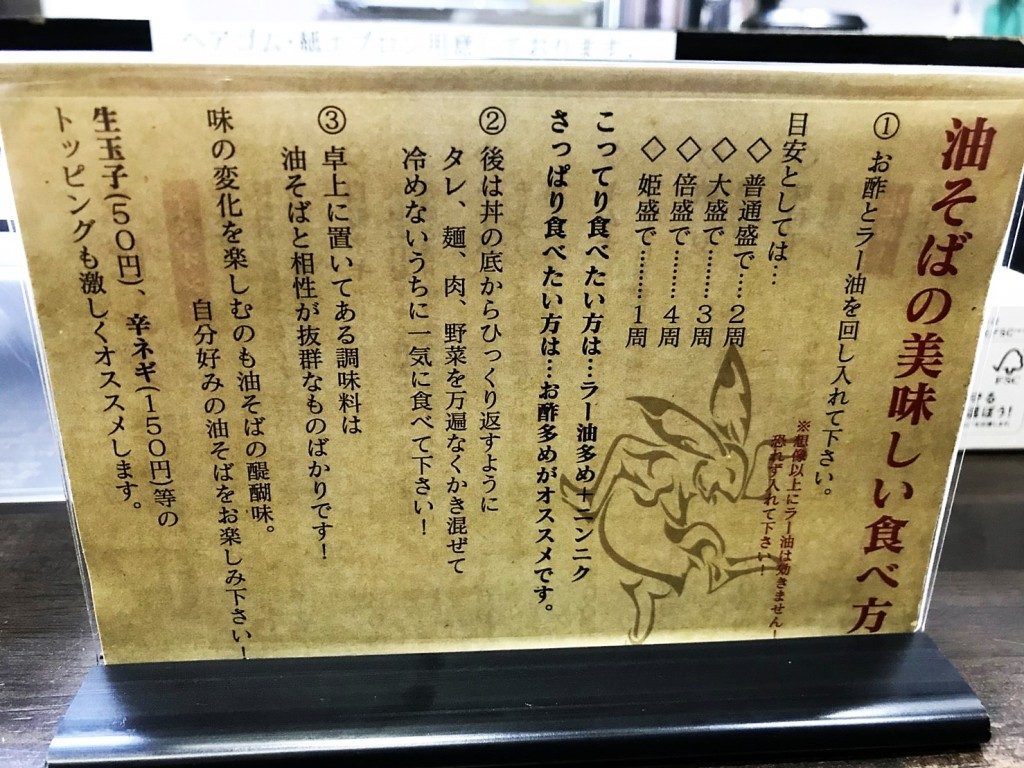 ヘアゴム・紙エプロン用意しております。
油そばの美味しい食べ方
① お酢とラー油を回し入れて下さい。
※想像以上にラー油は効きません！
恐れず入れて下さい！
目安としては…
◇ 普通盛で……2周
◇ 大盛で………3周
◇ 倍盛で………4周
◇ 姫盛で………1周
こってり食べたい方は…ラー油多め＋ニンニク
さっぱり食べたい方は…お酢多めがオススメです。
② 後は丼の底からひっくり返すように
タレ、麺、肉、野菜を万遍なくかき混ぜて
冷めないうちに一気に食べて下さい！
③ 卓上に置いてある調味料は
油そばと相性が抜群なものばかりです！
味の変化を楽しむのも油そばの醍醐味。
自分好みの油そばをお楽しみ下さい！
生玉子(50円)、辛ネギ(150円)等の
トッピングも激しくオススメします。
FSC